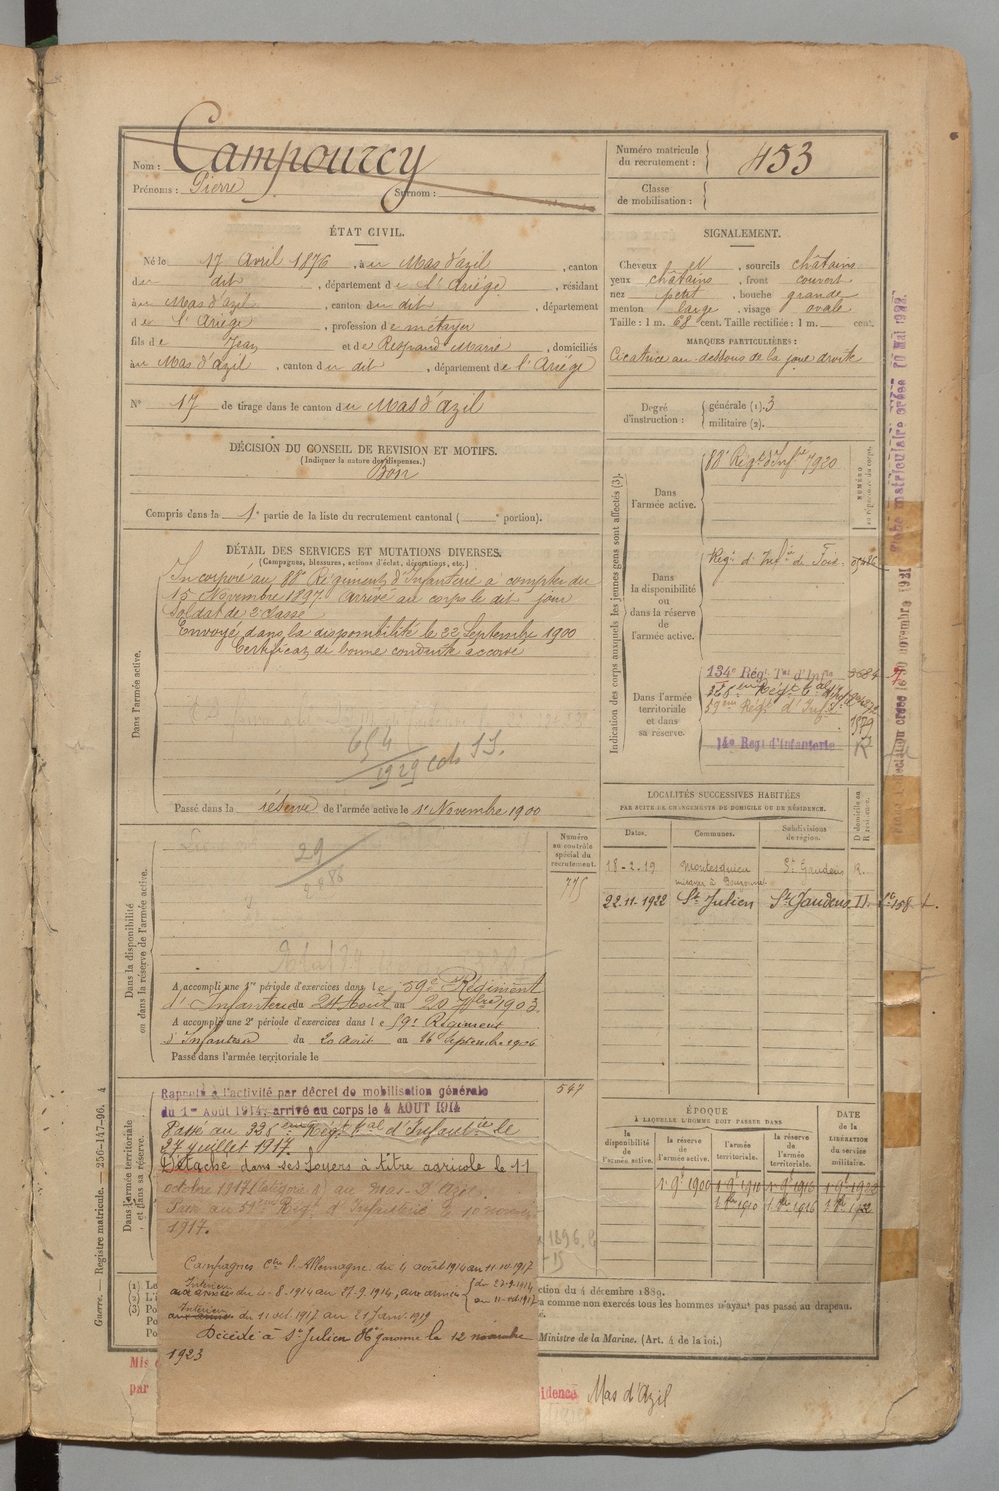 Nom : Campourcy
Prénoms : Pierre Surnom :
Numéro matricule du recrutement : 453
Classe de mobilisation :
ÉTAT CIVIL.
Né le 17 Avril 1876, à u Mas d'azil, canton
d u dit, département d e l'Ariège, résidant
à u Mas d'azil, canton d u dit, département
d e l'Ariège, profession d e métayer
fils d e Jean et d e Respaud Marie, domiciliés
à u Mas d'azil, canton d u dit, département d e l'Ariège
N° 17 de tirage dans le canton d u Mas d'azil
SIGNALEMENT.
Cheveux, sourcils châtains
yeux châtains, front couvert
nez petit, bouche grande
menton large, visage ovale
Taille : 1 m. 68 cent. Taille rectifiée : 1 m. cent.
MARQUES PARTICULIÈRES :
Cicatrice au-dessous de la joue droite
Degré d'instruction : générale (1). 3
militaire (2).
DÉCISION DU CONSEIL DE REVISION ET MOTIFS.
(Indiquer la nature des dispenses.)
Bon
Compris dans la 1e partie de la liste du recrutement cantonal ( e portion).
DÉTAIL DES SERVICES ET MUTATIONS DIVERSES.
(Campagnes, blessures, actions d'éclat, décorations, etc.)
Dans l'armée active.
Incorporé au 88e Régiment d'Infanterie à compter du
15 Novembre 1897. Arrivé au corps le dit jour
Soldat de 2e classe
Envoyé dans la disponibilité le 22 Septembre 1900
Certificat de bonne conduite accordé
654
1929
Passé dans la réserve de l'armée active le 1er Novembre 1900
Indication des corps auxquels les jeunes gens sont affectés (3).
NUMÉRO au répertoire du corps.
Dans l'armée active.
88e Régt d'Infie 7920
Dans la disponibilité ou dans la réserve de l'armée active.
Régt d'Infie de Foix
Dans l'armée territoriale et dans sa réserve.
134e Régt Tal d'Infie
325eme Régt tal d'Inf
59eme Régt d'Infie
14e Regt d'Infanterie
LOCALITÉS SUCCESSIVES HABITÉES
PAR SUITE DE CHANGEMENTS DE DOMICILE OU DE RÉSIDENCE.
Dates. Communes. Subdivisions de région. D domicile ou R résidence.
18-2-19 Montesquieu St Gaudens R.
22.11-1922 St Julien St Gaudens D.
Dans la disponibilité ou dans la réserve de l'armée active.
Numéro au contrôle spécial du recrutement.
775
29
A accompli une 1re période d'exercices dans l e 59e Régiment
d'Infanterie du 24 Août au 20 7bre 1903.
A accompli une 2e période d'exercices dans l e 59e Régiment
d'Infanterie du 20 août au 16 Septembre 1906
Passé dans l'armée territoriale le
Dans l'armée territoriale et dans sa réserve.
547
Rappelé à l'activité par décret de mobilisation générale
du 1er Aout 1914, arrivé au corps le 4 AOUT 1914
Passé au 325eme Régt tal d'Infanterie le
27 juillet 1917.
Détaché dans ses foyers à titre agricole le 11
octobre 1917 (catégorie A) au Mas-D'Azil.
Passé au 59eme Régt d'Infanterie le 10 novembre
1917.
Campagnes Ctre l'Allemagne du 4 août 1914 au 11-10-1917
Intérieur du 4-8-1914 au 27-9-1914, aux armées du 27-9-1914 au 11-oct-1917
Intérieur du 11 oct 1917 au 21 Janv. 1919
Décédé à St Julien Hte garonne le 12 novembre
1923
ÉPOQUE
À LAQUELLE L'HOMME DOIT PASSER DANS
la disponibilité de l'armée active.
la réserve de l'armée active.
l'armée territoriale.
la réserve de l'armée territoriale.
DATE de la LIBÉRATION du service militaire.
1. 9e 1900 1. 9e 1910 1. 9e 1916
1. 8bre 1910 1. 8bre 1916 1. 8bre 1922
ction du 4 décembre 1889.
a comme non exercés tous les hommes n'ayant pas passé au drapeau.
Ministre de la Marine. (Art. 4 de la loi.)
Mis
par
idence Mas d'Azil
Guerre. — Registre matricule. — 256-147-96. 4